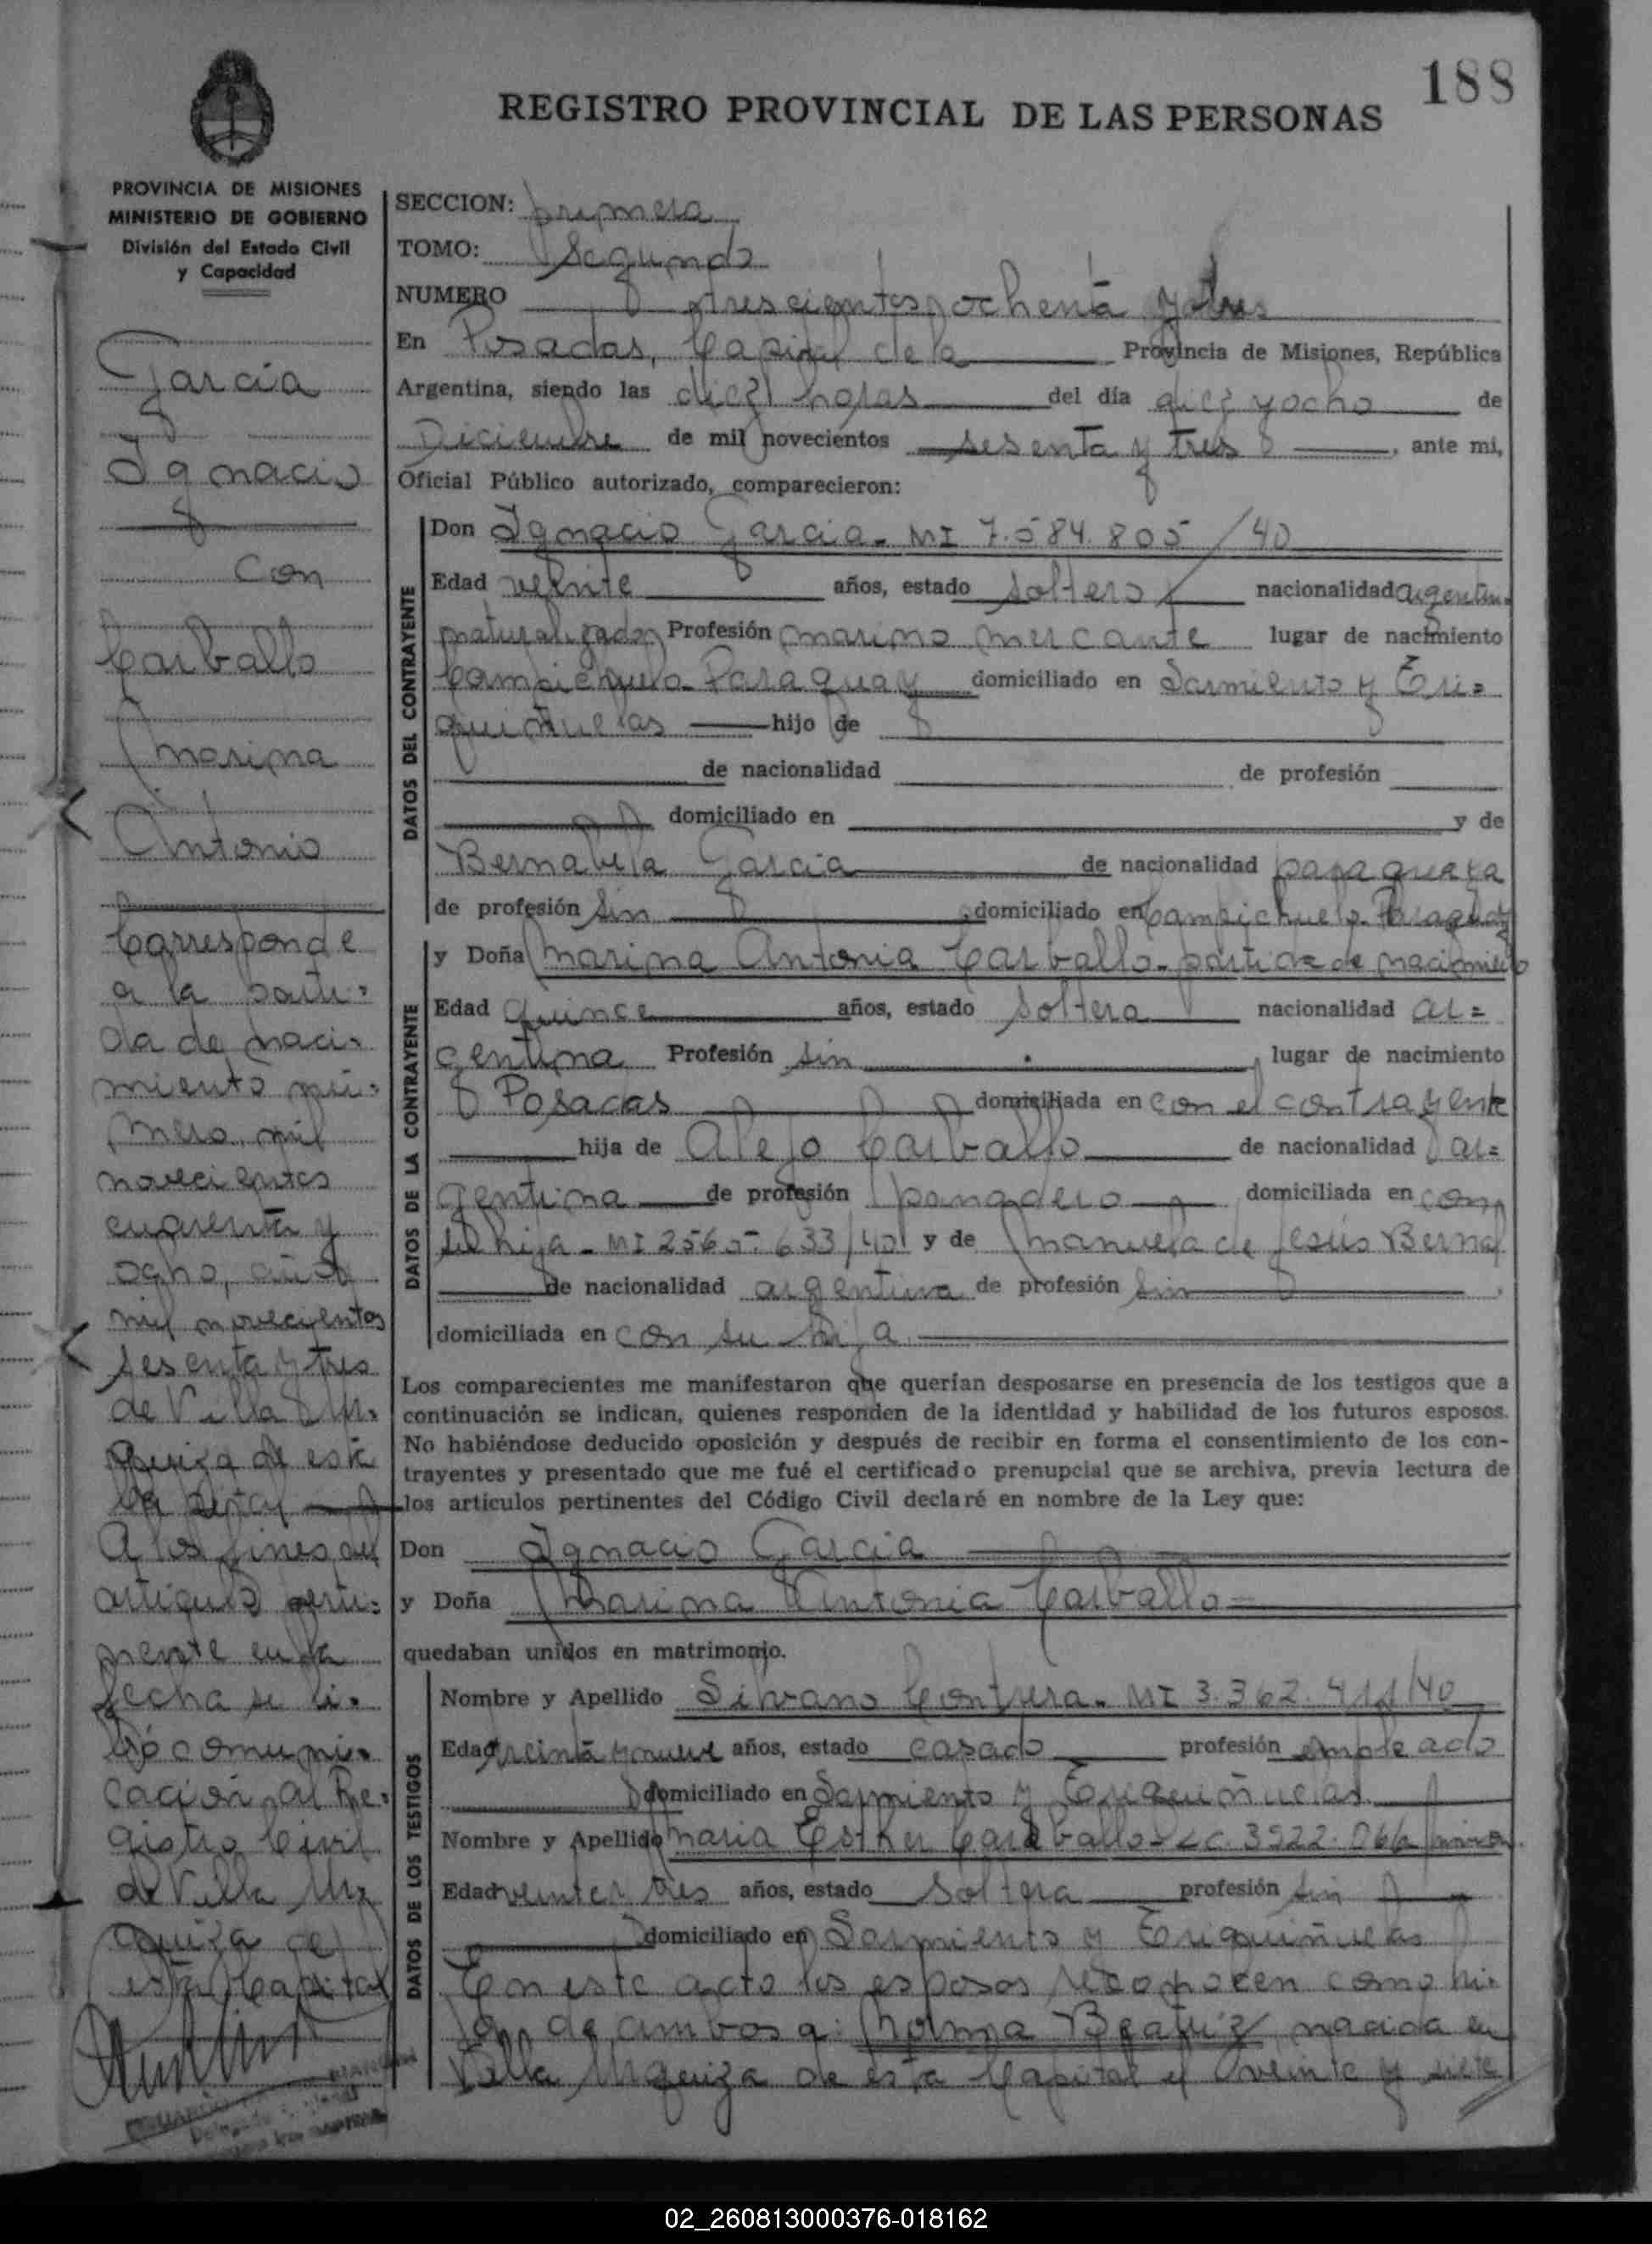 188
REGISTRO PROVINCIAL DE LAS PERSONAS
PROVINCIA DE MISIONES
MINISTERIO DE GOBIERNO
División del Estado Civil
y Capacidad
García
Ignacio
con
Carballo
Marina
Antonia
Corresponde
a la parti-
da de naci-
miento nú-
mero mil
novecientos
cuarenta y
ocho, año
mil novecientos
sesenta y tres
de Villa Ur-
quiza de esta
Capital
A los fines del
artículo perti-
nente en la
fecha se li-
bró comuni-
cación al Re-
gistro Civil
de Villa Ur-
quiza de
esta Capital
SECCION: primera
TOMO: Segundo
NUMERO trescientos ochenta y tres
En Posadas, Capital de la Provincia de Misiones, República
Argentina, siendo las diez horas del día diez y ocho de
Diciembre de mil novecientos sesenta y tres, ante mi,
Oficial Público autorizado, comparecieron:
DATOS DEL CONTRAYENTE
Don Ignacio García. MI 7.584.805/40
Edad veinte años, estado soltero nacionalidad argentin.
naturalizado Profesión marino mercante lugar de nacimiento
Campichuelo Paraguay domiciliado en Sarmiento y Eri=
guiñuelas hijo de
de nacionalidad de profesión
domiciliado en y de
Bernabela García de nacionalidad paraguaya
de profesión sin domiciliado en Campichuelo Paraguay
DATOS DE LA CONTRAYENTE
y Doña Marina Antonia Carballo - partida de nacimiento
Edad quince años, estado soltera nacionalidad ar=
gentina Profesión sin lugar de nacimiento
Posadas domiciliada en con el contrayente
hija de Alejo Carballo de nacionalidad ar=
gentina de profesión panadero domiciliada en con
su hija - MI 2565-633/40 y de Manuela de Jesús Bernal
de nacionalidad argentina de profesión sin
domiciliada en con su hija
Los comparecientes me manifestaron que querían desposarse en presencia de los testigos que a
continuación se indican, quienes responden de la identidad y habilidad de los futuros esposos.
No habiéndose deducido oposición y después de recibir en forma el consentimiento de los con-
trayentes y presentado que me fué el certificado prenupcial que se archiva, previa lectura de
los artículos pertinentes del Código Civil declaré en nombre de la Ley que:
Don Ignacio García
y Doña Marina Antonia Carballo
quedaban unidos en matrimonio.
DATOS DE LOS TESTIGOS
Nombre y Apellido Silvano Contrera. MI 3.362.411/40
Edad treinta y nueve años, estado casado profesión empleado
domiciliado en Sarmiento y Eriguiñuelas
Nombre y Apellido Maria Esther Carballo - LC. 3922.066
Edad veinte y tres años, estado soltera profesión sin
domiciliado en Sarmiento y Eriguiñuelas
En este acto los esposos reconocen como hi-
ja de ambos a: Norma Beatriz nacida en
Villa Urquiza de esta Capital el veinte y siete
02_260813000376-018162